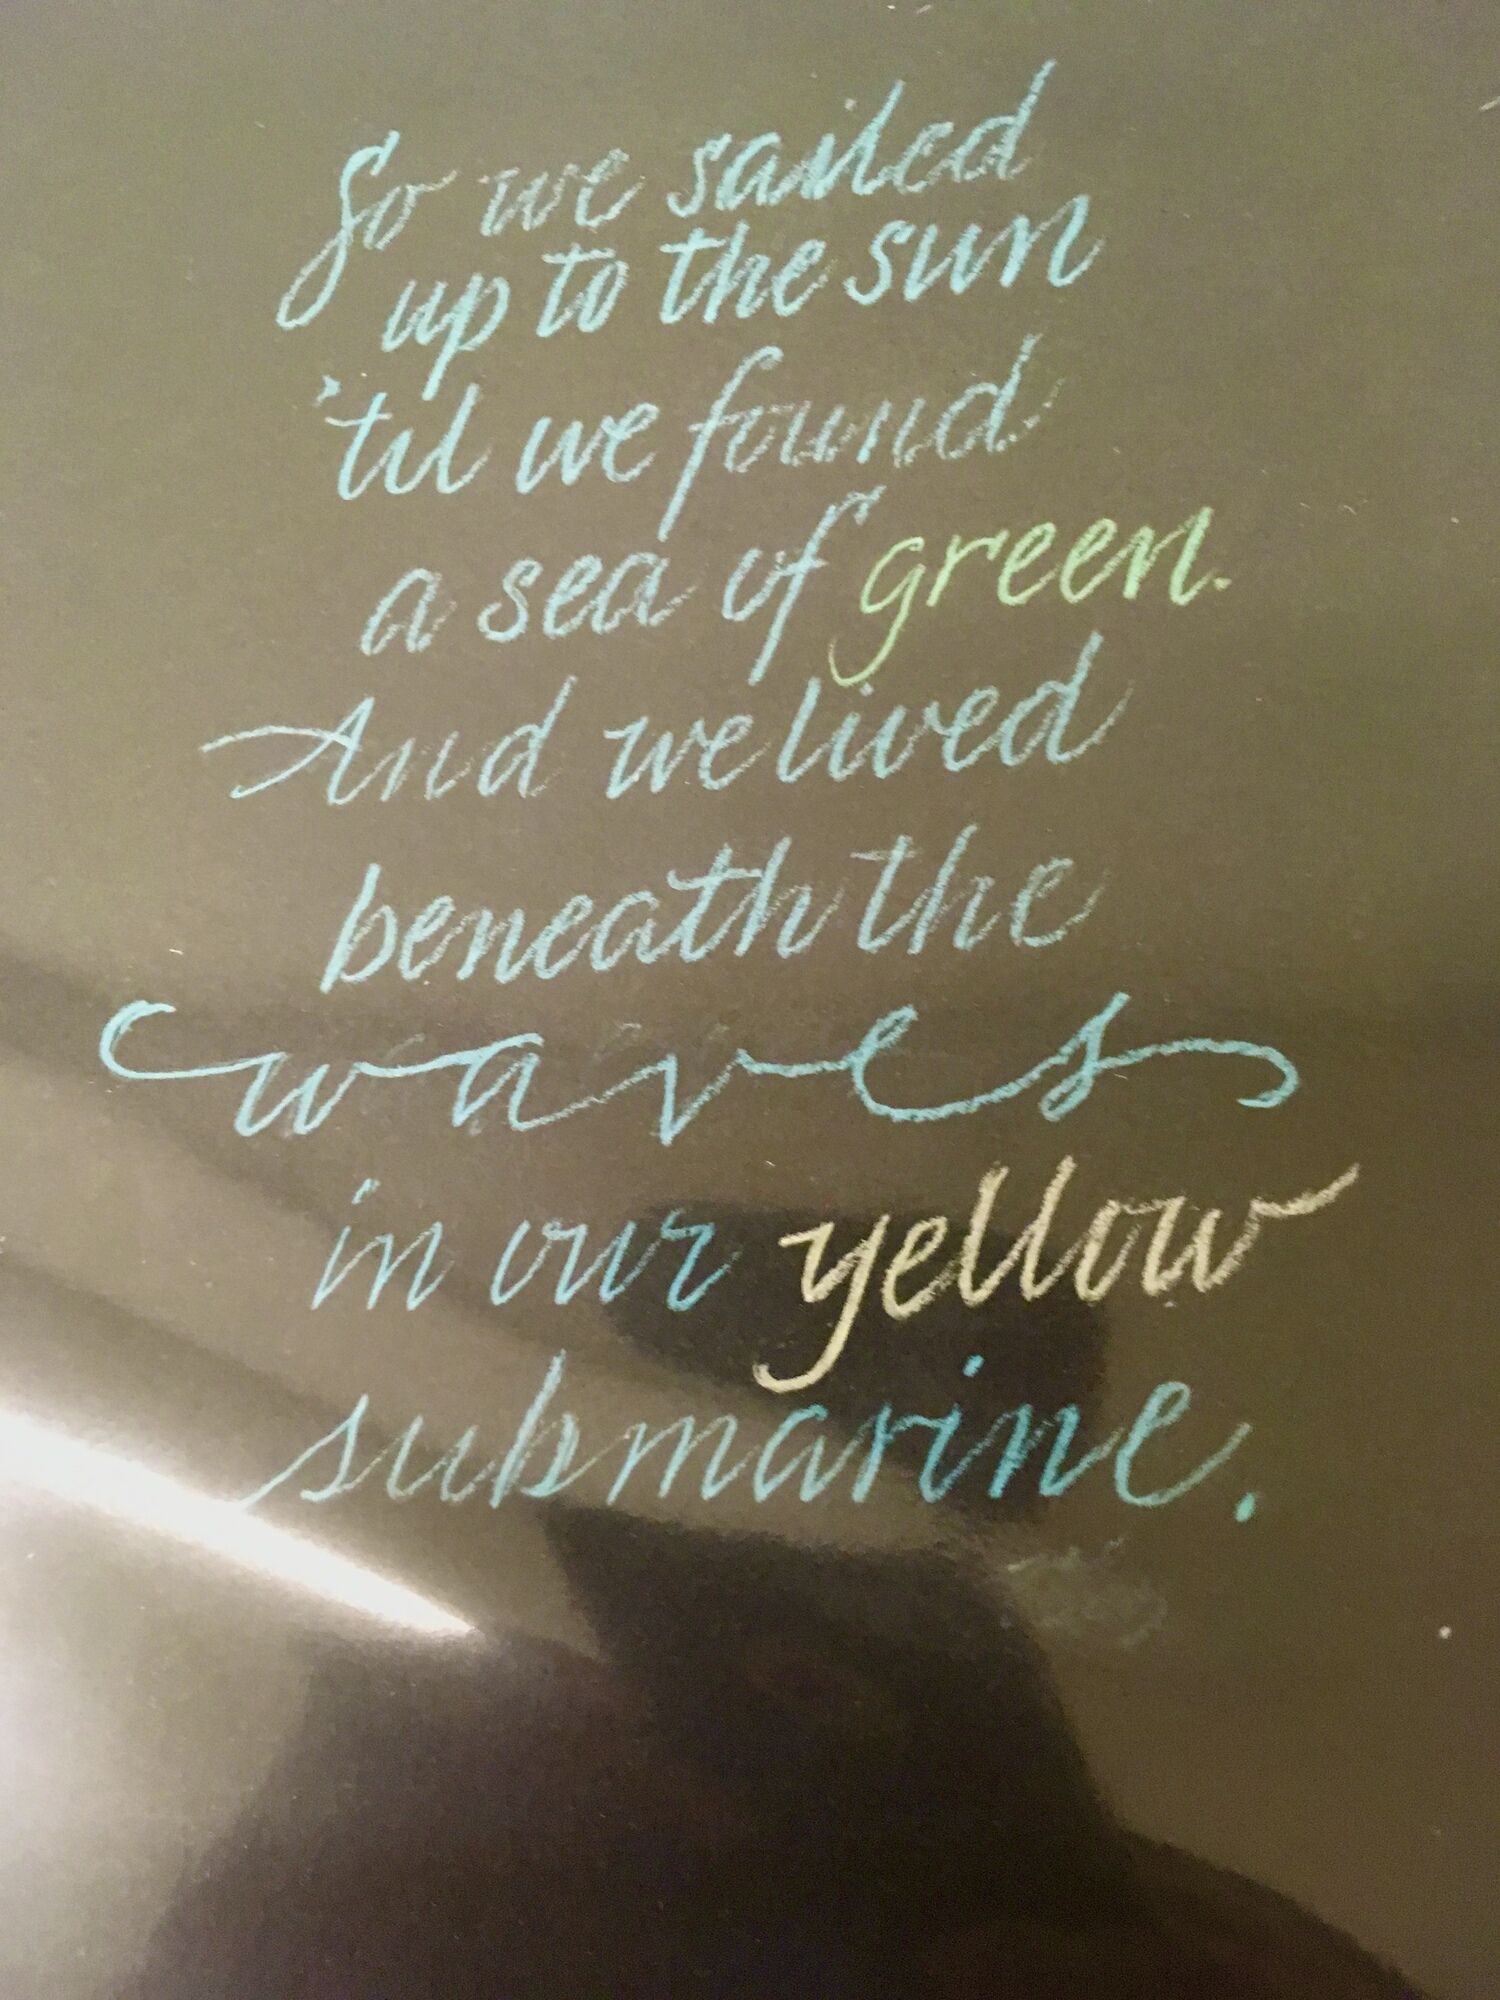 So we sailed
up to the sun
'til we found
a sea of green.
And we lived
beneath the
waves
in our yellow
submarine.